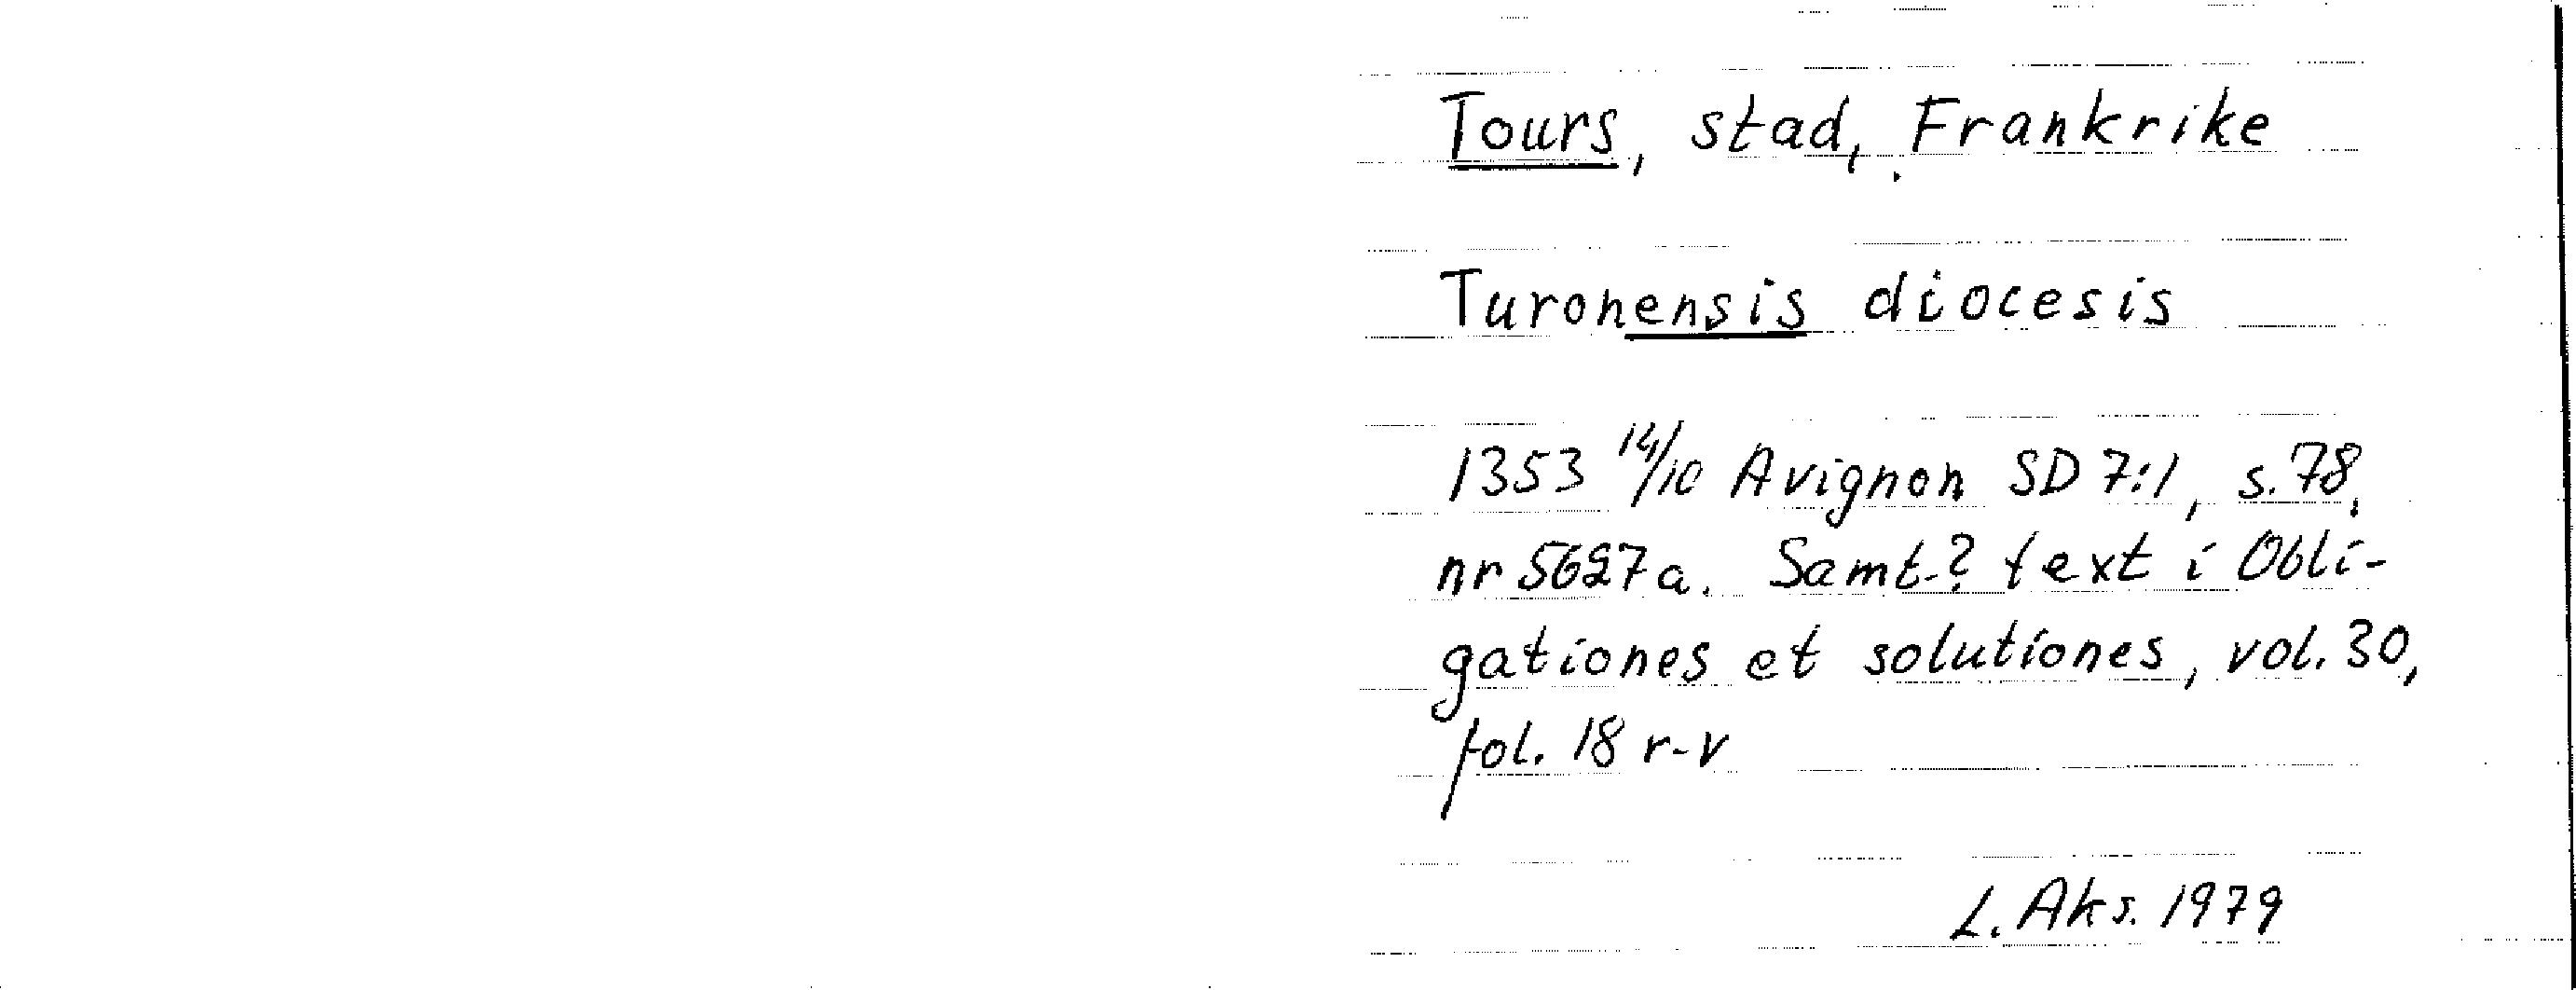 Tours, stad, Frankrike
Turonensis diocesis
1353 14/10 Avignon SD 7:1, s. 78,
nr 5627a. Samt.? text i Obli-
gationes et solutiones, vol. 30,
fol. 18 r-v
L. Aks. 1979